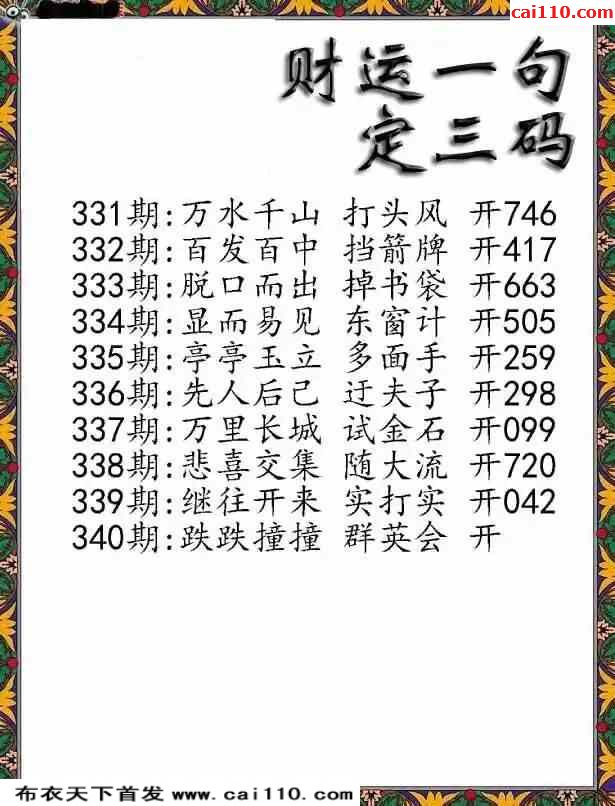 cai110.com
财运一句
定三码
331期:万水千山 打头风 开746
332期:百发百中 挡箭牌 开417
333期:脱口而出 掉书袋 开663
334期:显而易见 东窗计 开505
335期:亭亭玉立 多面手 开259
336期:先人后己 迂夫子 开298
337期:万里长城 试金石 开099
338期:悲喜交集 随大流 开720
339期:继往开来 实打实 开042
340期:跌跌撞撞 群英会 开
布衣天下首发 www.cai110.com